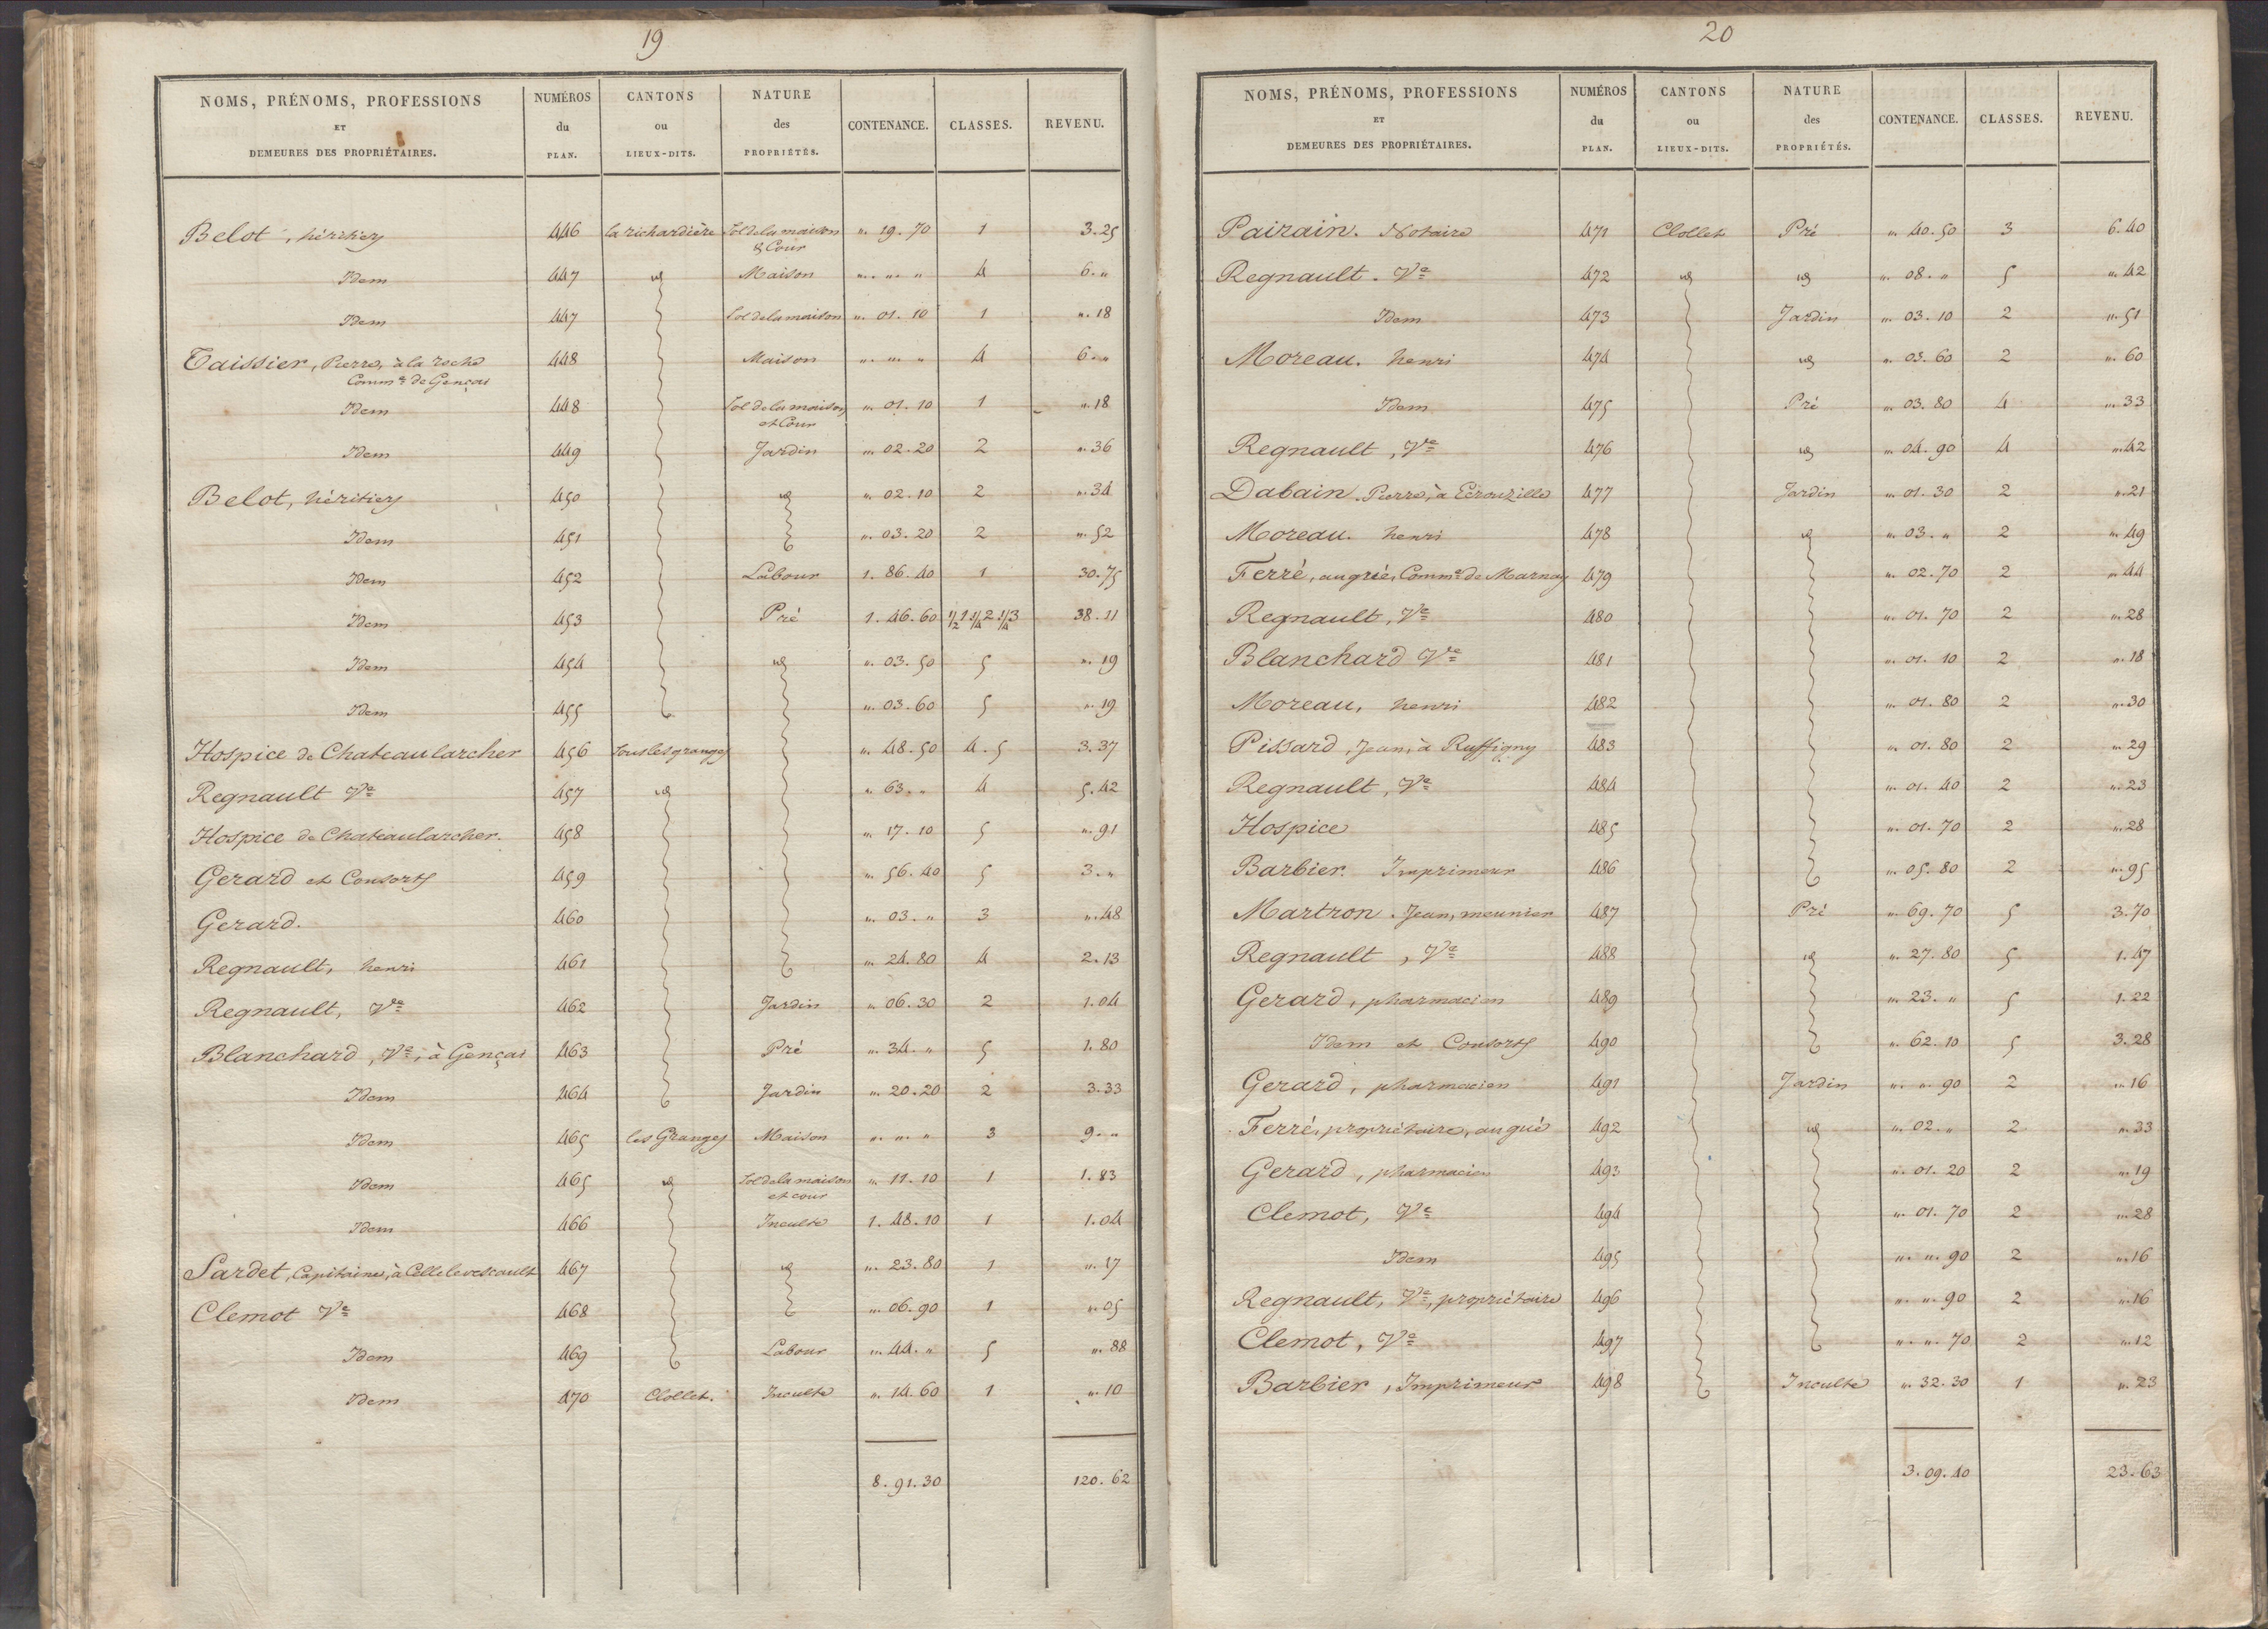 19
NOMS, PRÉNOMS, PROFESSIONS ET DEMEURES DES PROPRIÉTAIRES. NUMÉROS du PLAN. CANTONS ou LIEUX-DITS. NATURE des PROPRIÉTÉS. CONTENANCE. CLASSES. REVENU.
Belot, héritiers 446 la richardière Sol de la maison & Cour ". 19. 70 1 3.25
Idem 447 id Maison ". ". " 4 6. "
Idem 447 Sol de la maison ". 01. 10 1 ". 18
Taissier, Pierre, à la roche Comm.e de Gençai 448 Maison ". ". " 4 6. "
Idem 448 Sol de la maison et Cour ". 01. 10 1 ". 18
Idem 449 Jardin ". 02. 20 2 ". 36
Belot, héritiers 450 id ". 02. 10 2 ". 34
Idem 451 ". 03. 20 2 ". 52
Idem 452 Labour 1. 86. 40 1 30. 75
Idem 453 Pré 1. 46. 60 1/2 1 1/4 2 1/4 3 38. 11
Idem 454 id ". 03. 50 5 ". 19
Idem 455 ". 03. 60 5 ". 19
Hospice de Chateaularcher 456 Sous les granges ". 48. 50 4. 5 3. 37
Regnault Ve 457 id ". 63. " 4 5. 42
Hospice de Chateaularcher. 458 ". 17. 10 5 ". 91
Gerard et Consorts 459 ". 56. 40 5 3. "
Gerard. 460 ". 03. " 3 ". 48
Regnault, henri 461 ". 24. 80 4 2. 13
Regnault, Ve 462 Jardin ". 06. 30 2 1. 04
Blanchard, Ve, à Gençai 463 Pré ". 34. " 5 1. 80
Idem 464 Jardin ". 20. 20 2 3. 33
Idem 465 les Granges Maison ". ". " 3 9. "
Idem 465 id Sol de la maison et cour ". 11. 10 1 1. 83
Idem 466 Inculte 1. 48. 10 1 1. 04
Sardet, Capitaine, à Cellelevescault 467 id ". 23. 80 1 ". 17
Clemot Ve 468 ". 06. 90 1 ". 05
Idem 469 Labour ". 44. " 5 ". 88
Idem 470 Clollet. Inculte ". 14. 60 1 ". 10
8. 91. 30 120. 62
20
NOMS, PRÉNOMS, PROFESSIONS ET DEMEURES DES PROPRIÉTAIRES. NUMÉROS du PLAN. CANTONS ou LIEUX-DITS. NATURE des PROPRIÉTÉS. CONTENANCE. CLASSES. REVENU.
Pairain. Notaire 471 Clollet Pré ". 40. 50 3 6. 40
Regnault. Ve 472 id id ". 08. " 5 ". 42
Idem 473 Jardin ". 03. 10 2 ". 51
Moreau. henri 474 id ". 03. 60 2 ". 60
Idem 475 Pré ". 03. 80 4 ". 33
Regnault, Ve 476 id ". 04. 90 4 ". 42
Dabain. Pierre, à Ecrouzille 477 Jardin ". 01. 30 2 ". 21
Moreau. henri 478 id ". 03. " 2 ". 49
Ferré, au gué, Comm.e de Marnay 479 ". 02. 70 2 ". 44
Regnault, Ve 480 ". 01. 70 2 ". 28
Blanchard Ve 481 ". 01. 10 2 ". 18
Moreau, henri 482 ". 01. 80 2 ". 30
Pissard, Jean, à Ruffigny 483 ". 01. 80 2 ". 29
Regnault, Ve 484 ". 01. 40 2 ". 23
Hospice 485 ". 01. 70 2 ". 28
Barbier. Imprimeur 486 ". 05. 80 2 ". 95
Martron. Jean, meunier 487 Pré ". 69. 70 5 3. 70
Regnault, Ve 488 id ". 27. 80 5 1. 47
Gerard, pharmacien 489 ". 23. " 5 1. 22
Idem et Consorts 490 ". 62. 10 5 3. 28
Gerard, pharmacien 491 Jardin ". ". 90 2 ". 16
Ferré, propriétaire, au gué 492 id ". 02. " 2 ". 33
Gerard, pharmacien 493 ". 01. 20 2 ". 19
Clemot, Ve 494 ". 01. 70 2 ". 28
Idem 495 ". ". 90 2 ". 16
Regnault, Ve, propriétaire 496 ". ". 90 2 ". 16
Clemot, Ve 497 ". ". 70 2 ". 12
Barbier, Imprimeur 498 Inculte ". 32. 30 1 ". 23
3. 09. 40 23. 63